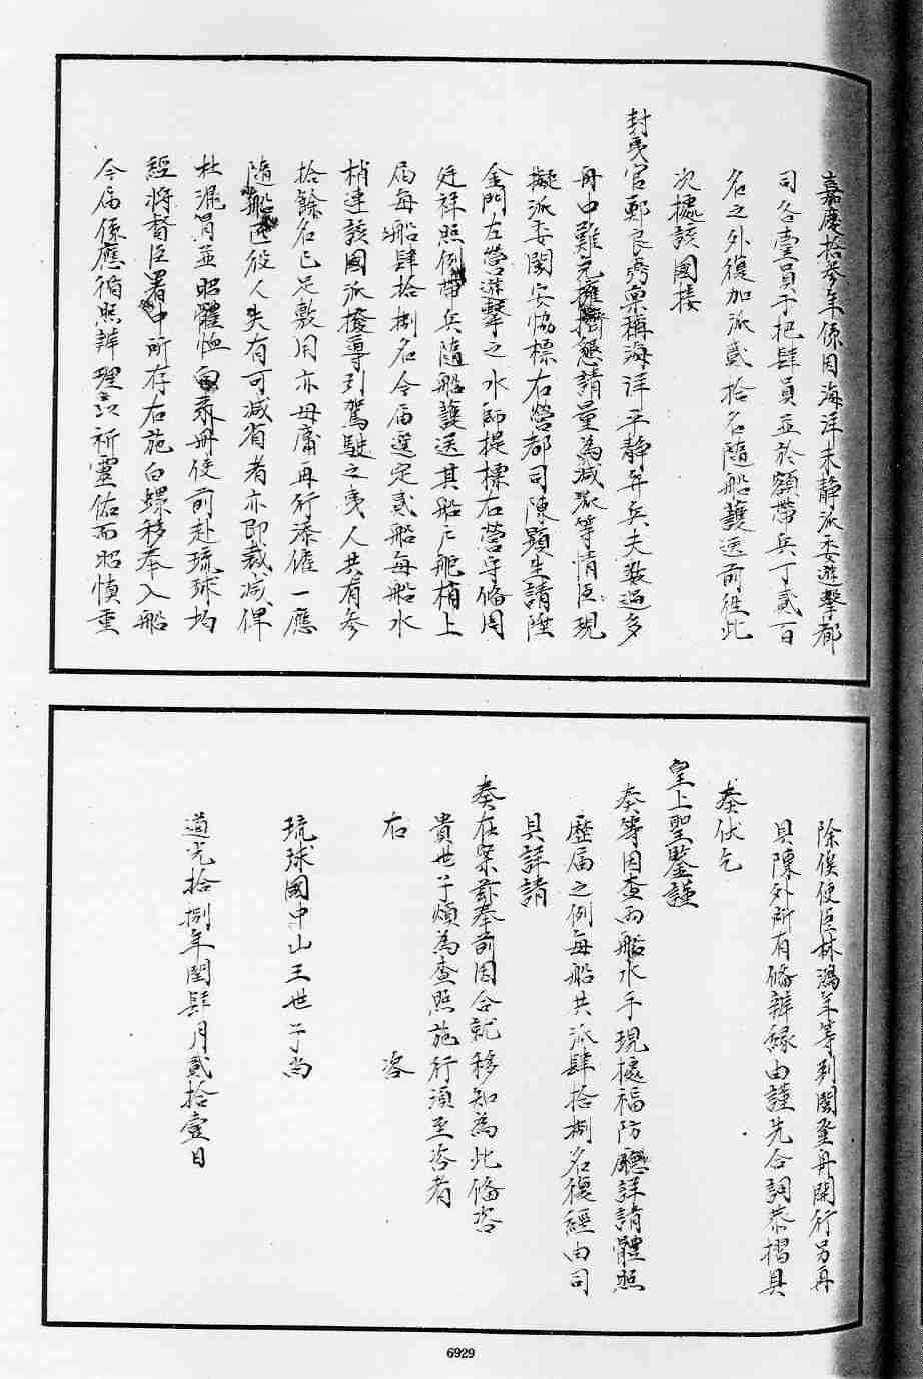 嘉慶拾參年係因海洋未靜派委遊擊都
司各壹員千把肆員並於額帶兵丁貳百
名之外復加派貳拾名隨船護送前徃此
次據該國接
封夷官鄭良弼稟稱海洋平靜弁兵夫裝過多
舟中難充擁擠懇請量為減派等情臣現
擬派委閩安協標右營都司陳顯生請陞
金門左營遊擊之水師提標右營守備周
廷祥照例帶兵隨船護送其船戶舵梢上
屆每船肆拾捌名今屆選定貳船每船水
梢連該國派撥導引駕駛之夷人共有參
拾餘名已足敷用亦毋庸再行添僱一應
隨船匠役人夫有可減省者亦即裁減俾
杜混冒並昭體恤自來冊使前赴琉球均
經將督臣署中所存右旋白螺移奉入船
今屆係應循照辦理以祈靈佑而昭慎重
除俟使臣林鴻年等到閩登舟開行另再
具陳外所有備辦緣由謹先合詞恭摺具
奏伏乞
皇上聖鑒謹
奏等因查兩船水手現據福防廳詳請體照
歷屆之例每船共派肆拾捌名復經由司
具詳請
奏在案茲奉前因合就移知為此備咨
貴世子煩為查照施行須至咨者
右　咨
琉球國中山王世子尚
道光拾捌年閏肆月貳拾壹日
6929